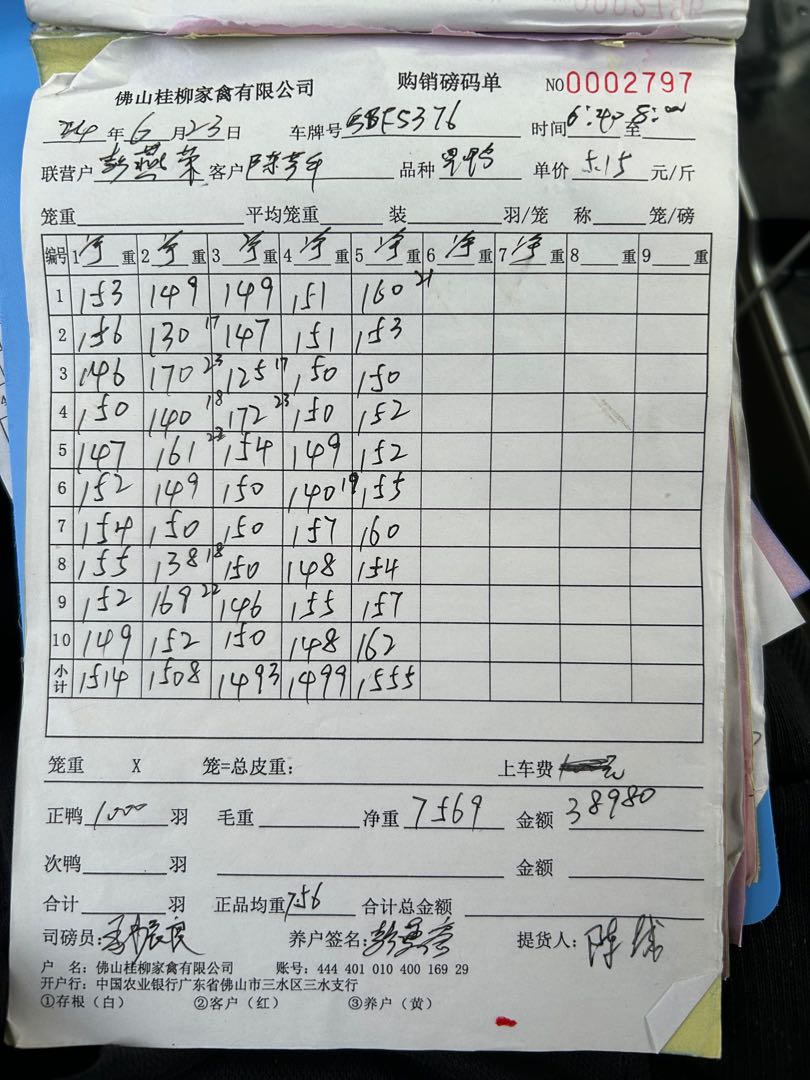 佛山桂柳家禽有限公司 购销磅码单 NO0002797
24 年 6 月 23 日 车牌号 5376 时间 6:40 至 8:00
联营户 燕 客户 陈 品种 单价 5.15 元/斤
笼重 平均笼重 装 羽/笼 称 笼/磅
编号 1 净 重 2 净 重 3 净 重 4 净 重 5 净 重 6 净 重 7 净 重 8 重 9 重
1 153 149 149 151 160 21
2 156 130 17 147 151 153
3 146 170 23 125 17 150 150
4 150 140 18 172 23 150 152
5 147 161 22 154 149 152
6 152 149 150 140 19 155
7 154 150 150 157 160
8 155 138 18 150 148 154
9 152 169 22 146 155 157
10 149 152 150 148 162
小计 1514 1508 1493 1499 1555
笼重 X 笼=总皮重: 上车费 元
正鸭 1000 羽 毛重 净重 7569 金额 38980
次鸭 羽 金额
合计 羽 正品均重 7.56 合计总金额
司磅员: 养户签名: 提货人: 陈
户 名: 佛山桂柳家禽有限公司 账号: 444 401 010 400 169 29
开户行: 中国农业银行广东省佛山市三水区三水支行
①存根(白) ②客户(红) ③养户(黄)